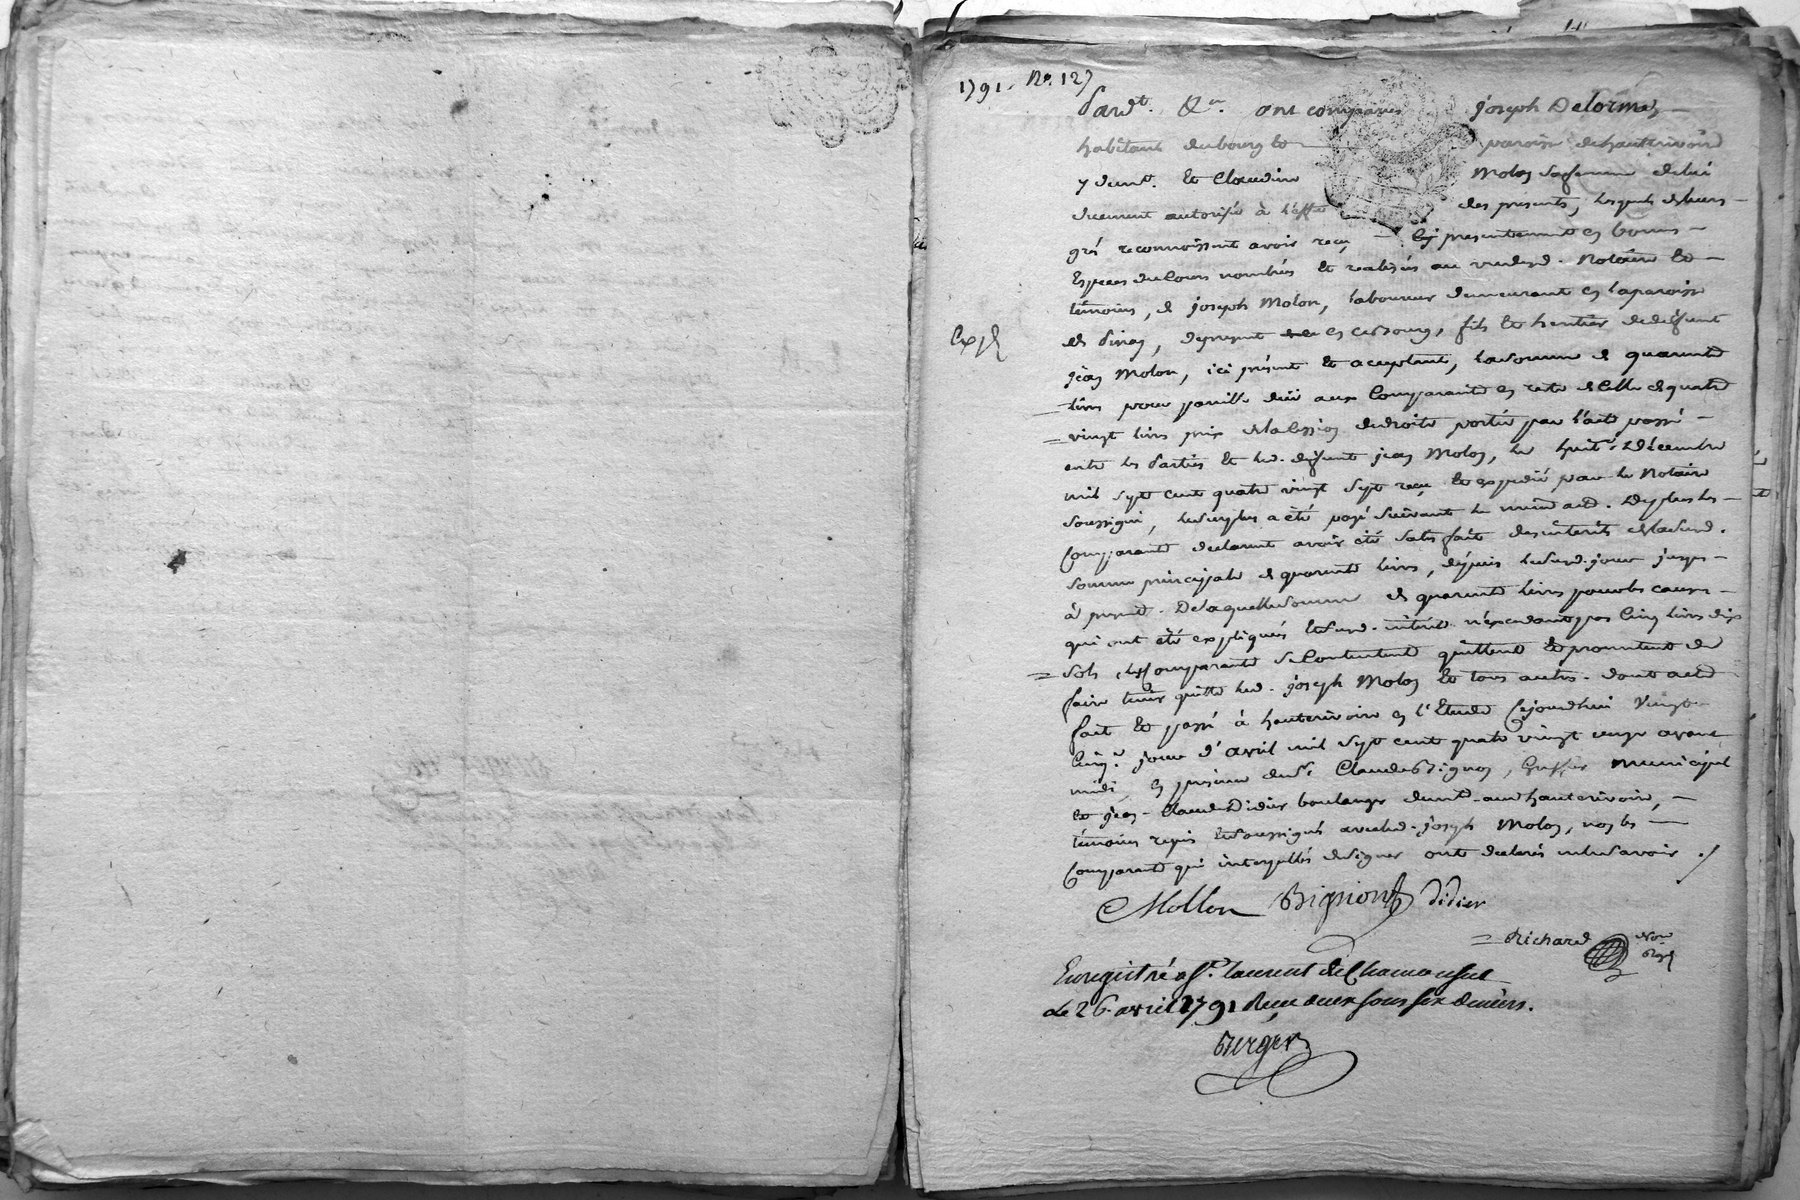 1791. No. 127
Pardt. &a. ont comparus Joseph Delorme,
habitant du bourg et paroisse de hauterivoire
y demt. Et Claudine Molon sa femme de lui
duement autorisée à l'effet des presents, lesquels de leurs
gré reconnoissent avoir reçu présentement en bonnes
Especes du Cours nombrés et realisés au vu dud. Notaire Et
témoins, de joseph Molon, laboureur demeurant en la paroisse
de , de present en ce bourg, fils Et heritier de deffunt
jean Molon, ici présent Et aceptant, la somme de quarante
livres pour pareille düe aux Comparants en reste de Celle de quatre
vingt livres prix de la Cession de droits portée par l'acte passé
entre les Parties Et led. deffunt jean Molon, le huit Décembre
mil sept cent quatre vingt sept reçu Et expedié par le Notaire
soussigné, le surplus a été payé suivant le meme acte. De plus les
Comparants declarent avoir été satisfait des intérêts de lad.
somme principale de quarante livres, depuis led. jour jusqu
à présent. De laquelle somme de quarante livres pour les causes
qui ont été expliquées Et intérêts n'éxcedant pas Cinq livres dix
sols, les Comparants se Contentent quittent Et promettent de
faire tenir quitte led. joseph Molon Et tous autres. Dont acte
fait Et passé à hauterivoire en l'Etude Cejourdhui Vingt
Cinq. jour d'avril mil sept cent quatre vingt onze avant
midi, En présence de Sr. Claude Bignon, Greffier Municipal
Et jean-Claude Didier boulanger demt. aud hauterivoire,
témoins requis Et soussignés avec led. joseph Molon, non les
Comparants qui interpellés de signer ont declarés ne le savoir ./
Mollon Bignon Didier
Richard Nore
Royl
Expd
Enregistré a St. Laurent de Chamousset
Le 26. avril 1791 Reçu deux sous six deniers.
Berger